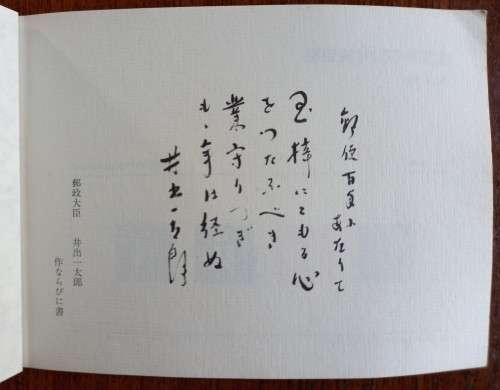 郵便百年にあたりて
玉梓にこもる心
をつたふべき
業守りつぎ
もゝ年は経ぬ
井出一太郎
郵政大臣　井出一太郎
作ならびに書